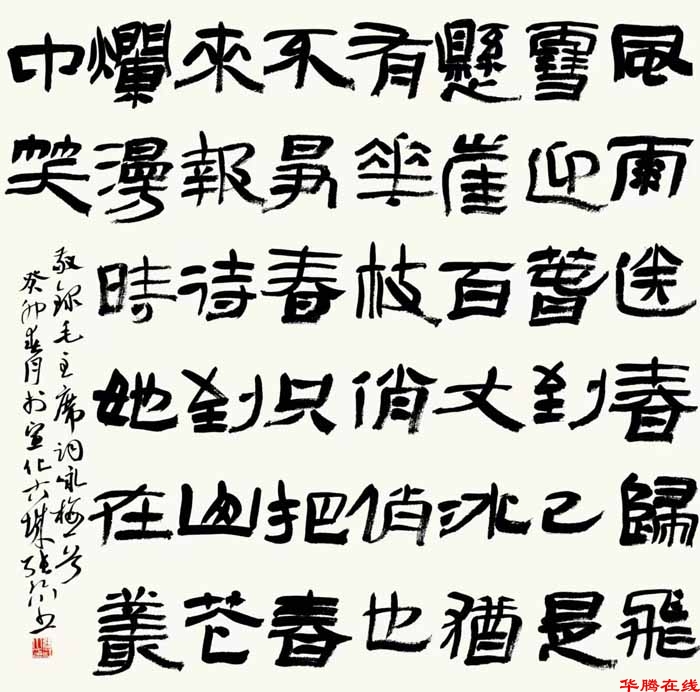 風雨送春歸飛
雪迎春到已是
懸崖百丈冰猶
有華枝俏俏也
不爭春只把春
來報待到山花
爛漫時她在叢
中笑
敬錄毛主席詞咏梅一首
癸卯春月於宣化古城張書
华腾在线